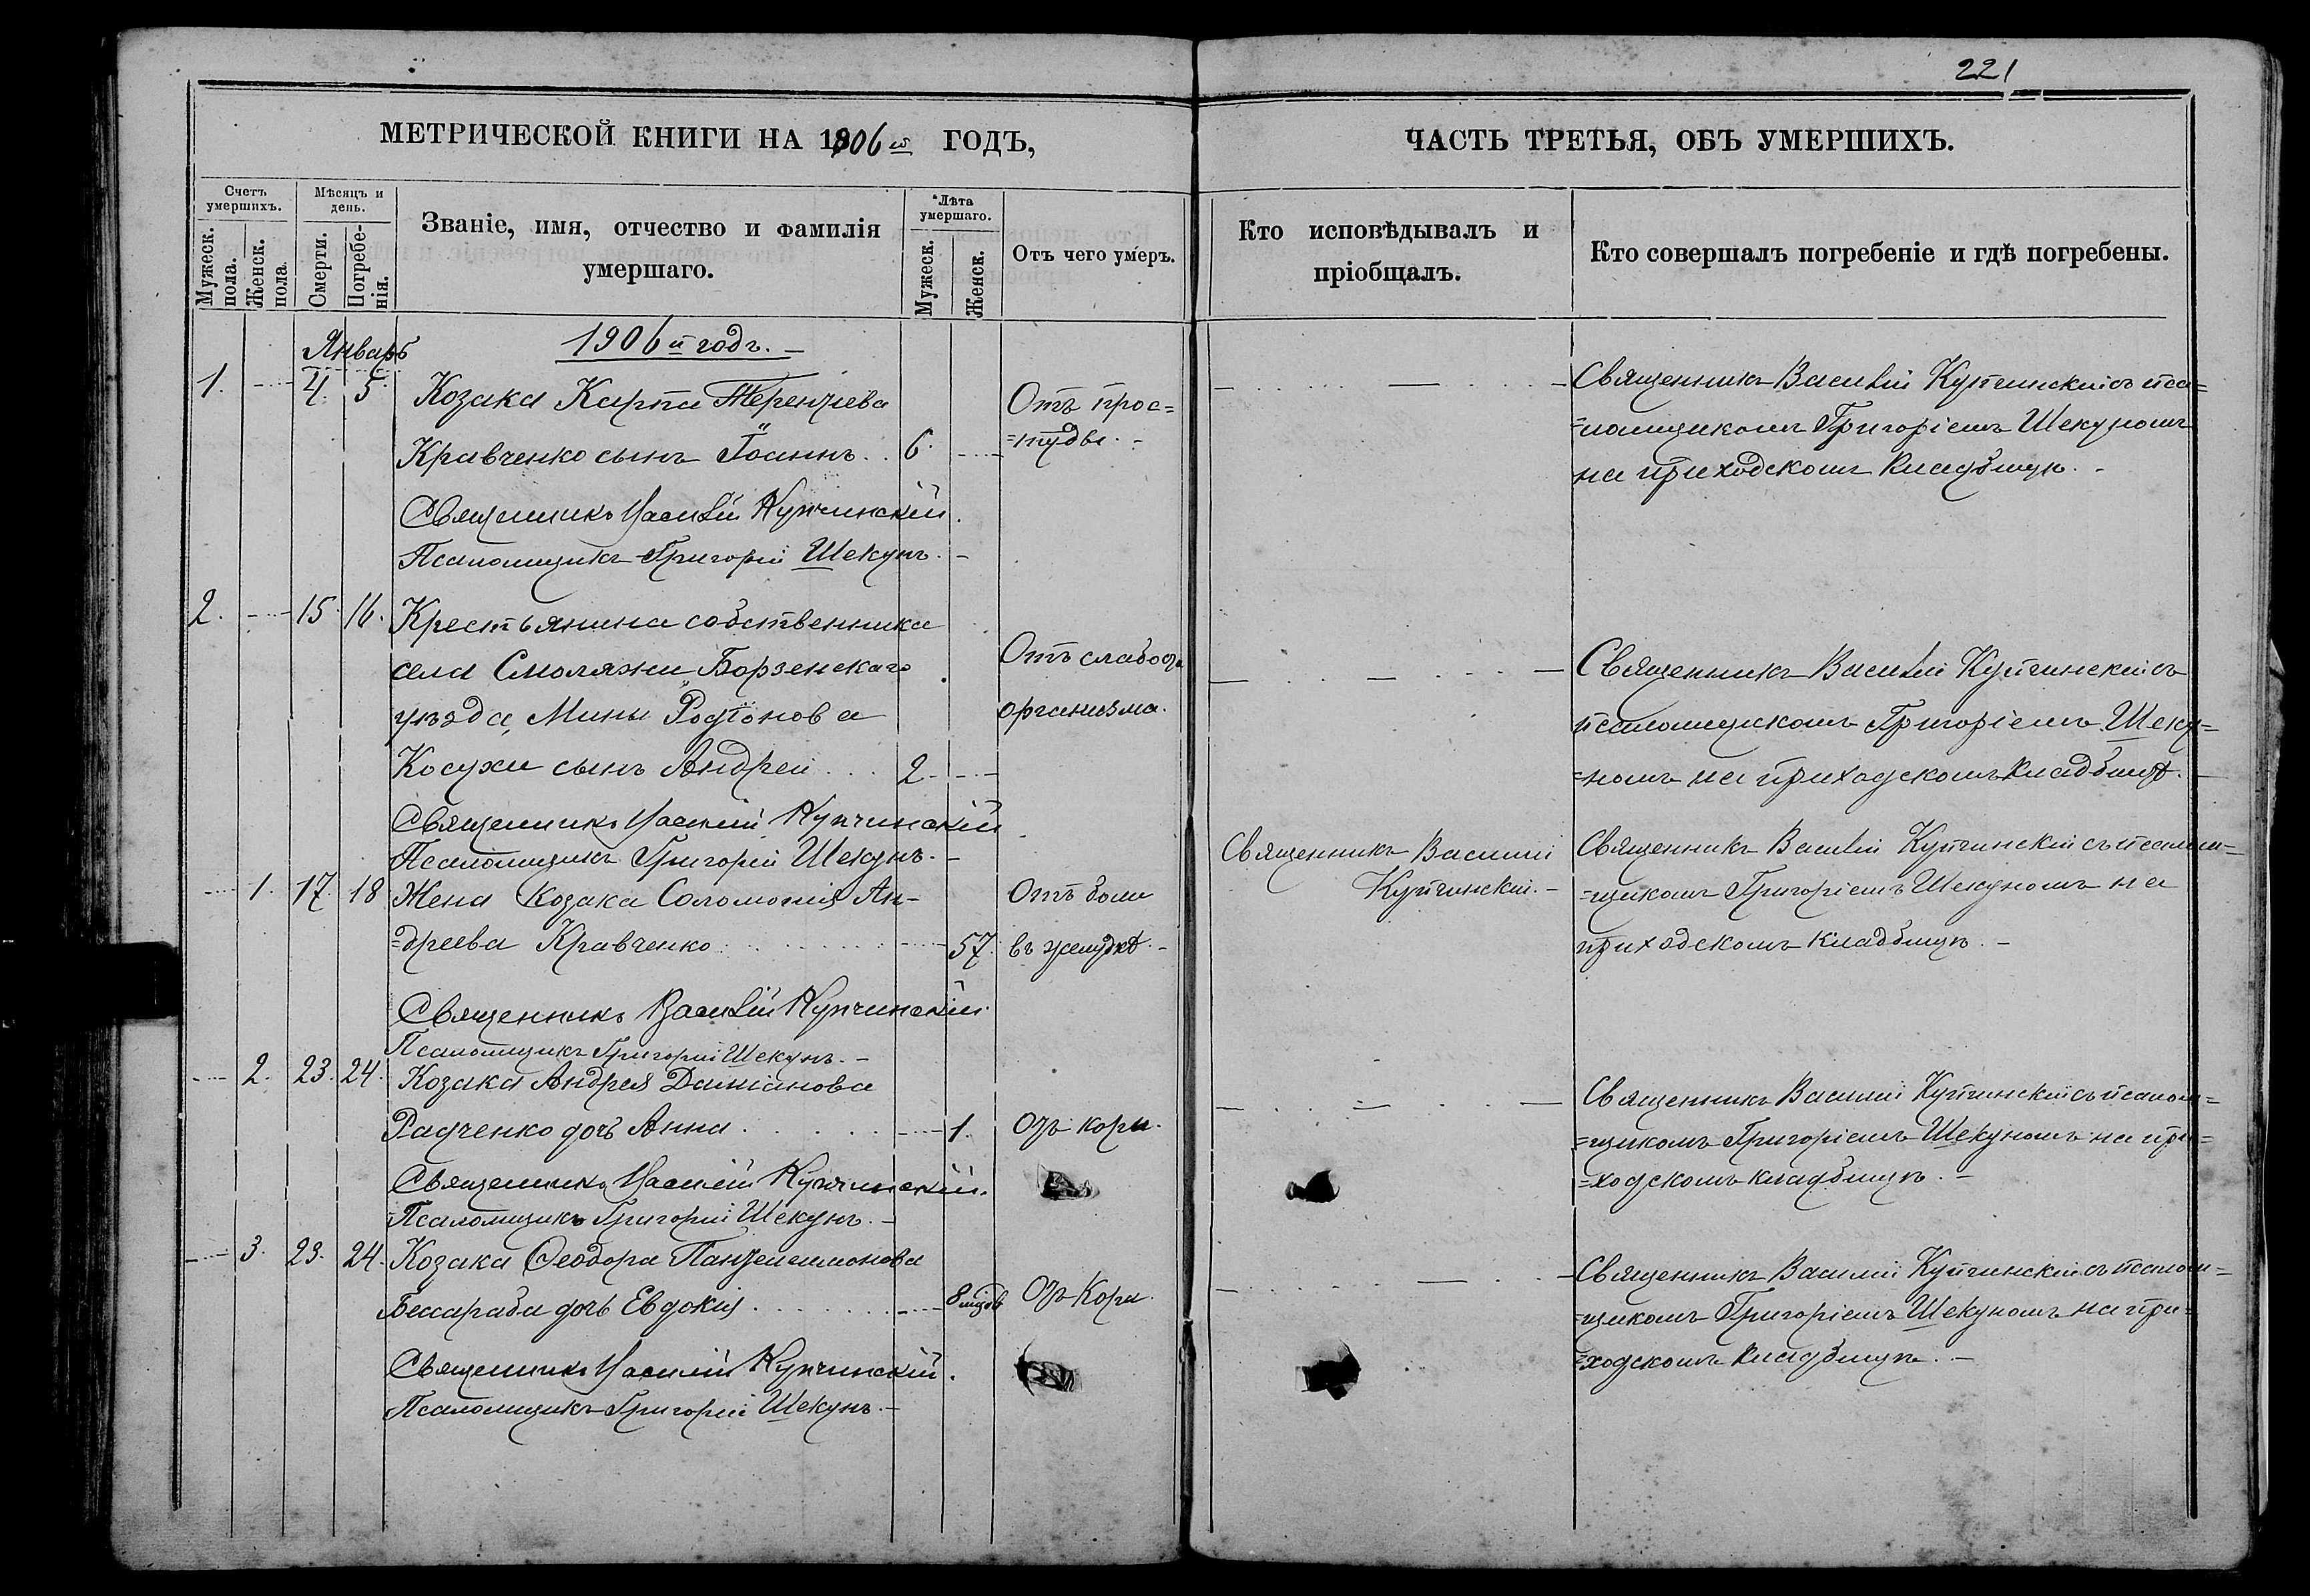 221
МЕТРИЧЕСКОЙ КНИГИ НА 1906й ГОДЪ,
ЧАСТЬ ТРЕТЬЯ, ОБЪ УМЕРШИХЪ.
Счетъ умершихъ.
Мужеск. пола.
Женск. пола.
Мѣсяцъ и день.
Смерти.
Погребе-
нія.
Званіе, имя, отчество и фамилія
умершаго.
Лѣта умершаго.
Мужеск.
Женск.
Отъ чего умеръ.
Кто исповѣдывалъ и
пріобщалъ.
Кто совершалъ погребеніе и гдѣ погребены.
Январь
1906й годъ. –
1. 4. 5. Козака Карпа Терентіева
Кравченко сынъ Іоаннъ. . 6.
Отъ прос=
=туды. -
Священникъ Василій Купчинскій съ псa=
=ломщикомъ Григоріемъ Шекуномъ
на приходскомъ кладбищѣ. -
Священникъ Василій Купчинскій.
Псаломщикъ Григорій Шекунъ. –
2. 15. 16. Крестьянина собственника
села Смоляжи Борзенскаго
уѣзда, Мины Родіонова
Косухи сынъ Андрей . . . 2.
Отъ слабости
организма.
Священникъ Василій Купчинскій съ
псаломщикомъ Григоріемъ Шеку=
=номъ на приходскомъ кладбищѣ. –
Священникъ Василій Купчинскій.
Псаломщикъ Григорій Шекунъ. –
1. 17. 18 Жена Козака Соломонія Ан-
=дреева Кравченко . . . 57.
Отъ боли
въ желудкѣ. -
Священникъ Василій
Купчинскій. -
Священникъ Василій Купчинскій съ псалом=
=щикомъ Григоріемъ Шекуномъ на
приходскомъ кладбищѣ. –
Священникъ Василій Купчинскій.
Псаломщикъ Григорій Шекунъ. –
2. 23. 24. Козака Андрея Даміанова
Радченко дочь Анна . . . 1.
Отъ кори.
Священникъ Василій Купчинскій съ псалом=
=щикомъ Григоріемъ Шекуномъ на при=
=ходскомъ кладбищѣ. –
Священникъ Василій Купчинскій.
Псаломщикъ Григорій Шекунъ. –
3. 23. 24. Козака Ѳеодора Пантелеимонова
Бессараба дочь Евдокія . . . 8 мѣсяц
Отъ Кори.
Священникъ Василій Купчинскій съ псалом=
=щикомъ Григоріемъ Шекуномъ на при=
=ходскомъ кладбищѣ. –
Священникъ Василій Купчинскій.
Псаломщикъ Григорій Шекунъ. –